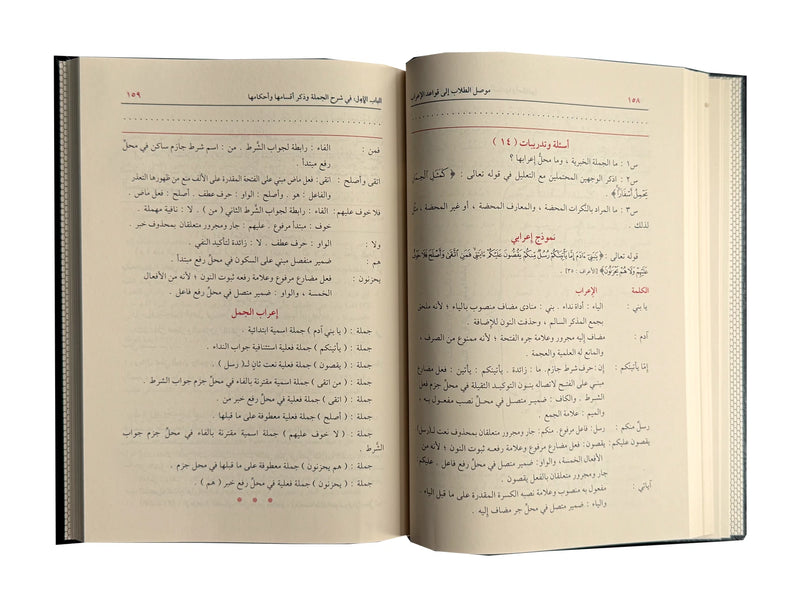 ١٥٨ موصل الطلاب إلى قواعد الإعراب
أسئلة وتدريبات ( ١٤ )
س١ : ما الجملة الخبرية ، وما محلّ إعرابها ؟
س٢ : اذكر الوجهين المحتملين مع التعليل في قوله تعالى : ﴿ كَمَثَلِ ٱلْحِمَارِ
يَحْمِلُ أَسْفَارًا ﴾ .
س٣ : ما المراد بالنَّكرات المحضة ، والمعارف المحضة ، أو غير المحضة ،
لذلك .
نموذج إعرابي
قوله تعالى : ﴿ يَٰبَنِىٓ ءَادَمَ إِمَّا يَأْتِيَنَّكُمْ رُسُلٌ مِّنكُمْ يَقُصُّونَ عَلَيْكُمْ ءَايَٰتِى فَمَنِ ٱتَّقَىٰ وَأَصْلَحَ فَلَا خَوْفٌ
عَلَيْهِمْ وَلَا هُمْ يَحْزَنُونَ ﴾ [الأعراف : ٣٥] .
الكلمة الإعراب
يا بني : الياء : أداة نداء . بني : منادى مضاف منصوب بالياء ؛ لأنه ملحق
بجمع المذكر السالم ، وحذفت النون للإضافة .
آدم : مضاف إليه مجرور وعلامة جره الفتحة ؛ لأنه ممنوع من الصرف ،
والمانع له العلمية والعجمة .
إمّا يأتينكم : إن: حرف شرط جازم. ما : زائدة . يأتينكم : يأتين : فعل مضارع
مبني على الفتح لاتصاله بنون التوكيد الثقيلة في محلّ جزم فعل
الشرط . والكاف : ضمير متصل في محلّ نصب مفعول به ،
والميم : علامة الجمع .
رسلٌ منكم : رسل: فاعل مرفوع. منكم: جار ومجرور متعلقان بمحذوف نعت لـ(رسل)
يقصون عليكم: يقصون: فعل مضارع مرفوع وعلامة رفعه ثبوت النون ؛ لأنه من
الأفعال الخمسة، والواو: ضمير متصل في محلّ رفع فاعل . عليكم :
جار ومجرور متعلقان بالفعل يقصون .
آياتي : مفعول به منصوب وعلامة نصبه الكسرة المقدرة على ما قبل الياء .
والياء : ضمير متصل في محلّ جر مضاف إليه .
الباب الأول: في شرح الجملة وذكر أقسامها وأحكامها ١٥٩
فمن : الفاء : رابطة لجواب الشَّرط . من : اسم شرط جازم ساكن في محلّ
رفع مبتدأ .
اتقى وأصلح : اتقى: فعل ماض مبني على الفتحة المقدرة على الألف منع من ظهورها التعذر
والفاعل : هو . وأصلح : الواو : حرف عطف . أصلح : فعل ماض .
فلا خوف عليهم: الفاء : رابطة لجواب الشَّرط الثاني ( من ) . لا : نافية مهملة .
خوف : مبتدأ مرفوع . عليهم : جار ومجرور متعلقان بمحذوف خبر .
ولا : الواو : حرف عطف . لا : زائدة لتأكيد النفي .
هم : ضمير منفصل مبني على السكون في محلّ رفع مبتدأ .
يحزنون : فعل مضارع مرفوع وعلامة رفعه ثبوت النون ؛ لأنه من الأفعال
الخمسة ، والواو : ضمير متصل في محلّ رفع فاعل .
إعراب الجمل
جملة : ( يا بني آدم ) جملة اسمية ابتدائية .
جملة : ( يأتينكم ) جملة فعلية استئنافية جواب النداء .
جملة : ( يقصون ) جملة فعلية نعت ثانٍ لـ( رسل ) .
جملة : ( من اتقى ) جملة اسمية مقترنة بالفاء في محلّ جزم جواب الشرط .
جملة : ( اتقى ) جملة فعلية في محلّ رفع خبر من .
جملة : ( أصلح ) جملة فعلية معطوفة على ما قبلها .
جملة : ( لا خوف عليهم ) جملة اسمية مقترنة بالفاء في محلّ جزم جواب
الشَّرط .
جملة : ( هم يحزنون ) جملة معطوفة على ما قبلها في محلّ جزم .
جملة : ( يحزنون ) جملة فعلية في محلّ رفع خبر ( هم ) .